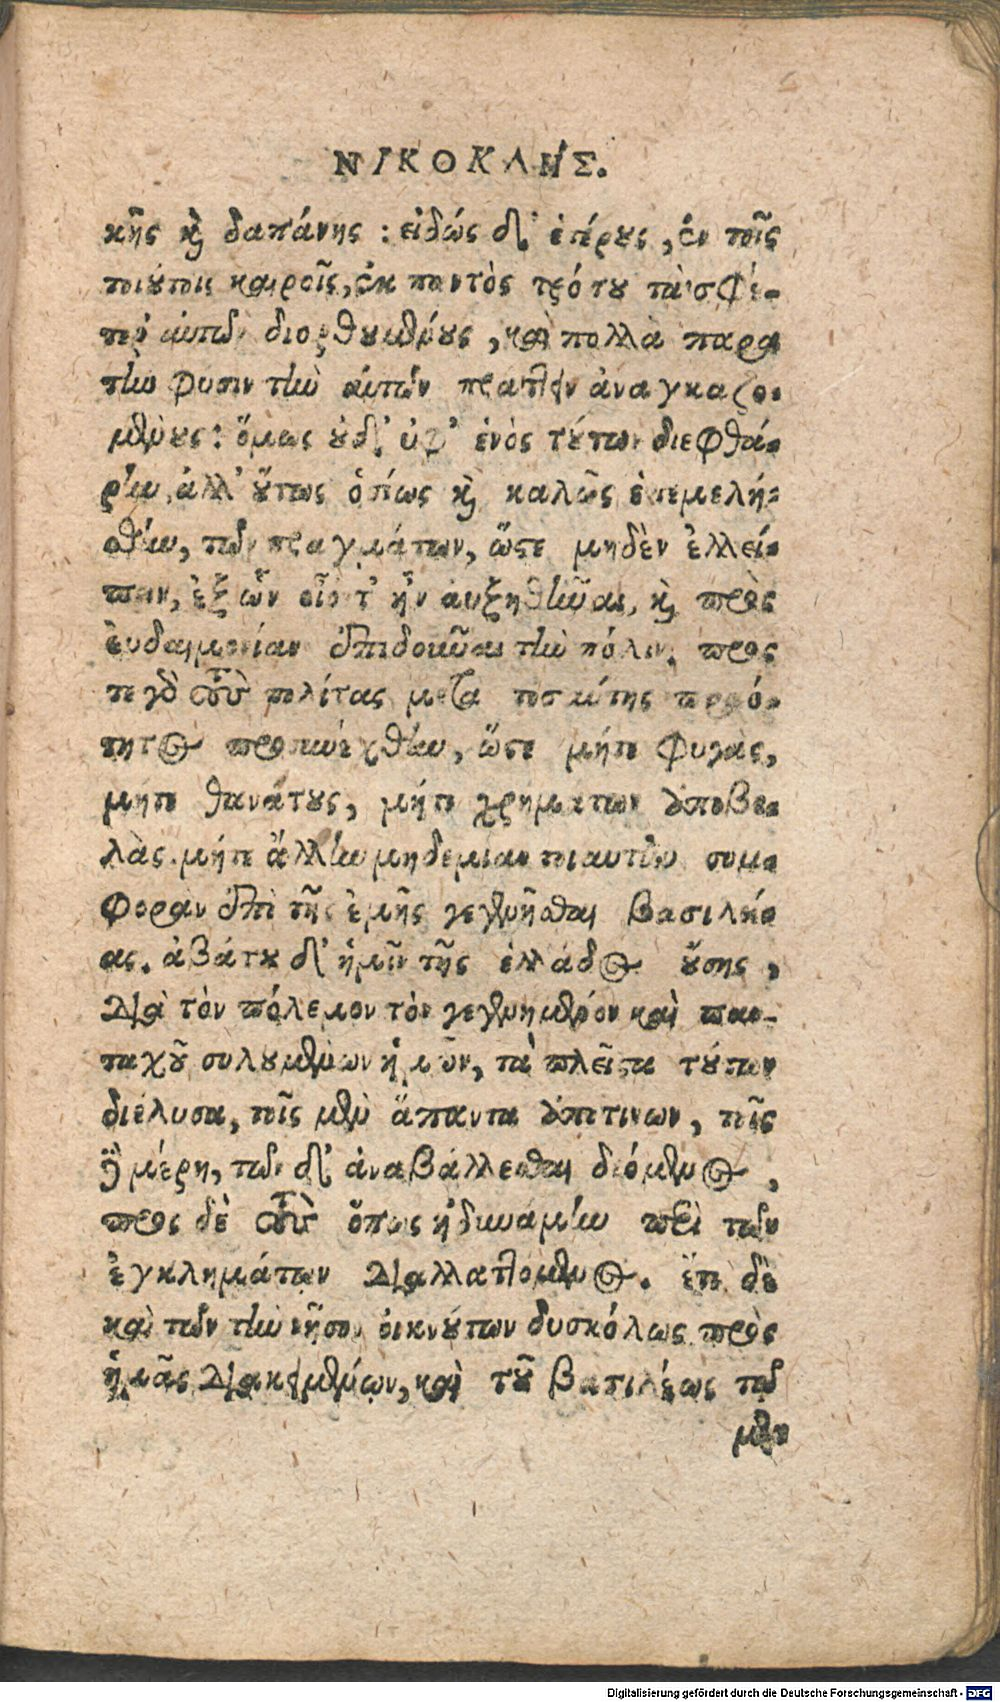 ΝΙΚΟΚΛΗΣ.
κῆς καὶ δαπάνης : εἰδώς δ᾽ ἑτέρους, ἐν τοῖς
τοιούτοις καιροῖς, ἐκ παντὸς τρόπου τὰ σφέ-
τερ᾽ αὐτῶν διορθουμένους, καὶ πολλὰ παρα
τὴν φυσιν τὴν αὑτῶν πράττειν ἀναγκαζο-
μένους : ὅμως οὐδ᾽ ὑφ᾽ ἑνὸς τούτων διεφθά-
ρην, ἀλλ᾽ οὕτως ὁσίως καὶ καλῶς ἐπεμελή-
θην, τῶν πραγμάτων, ὥστε μηδὲν ἐλλεί-
πειν, ἐξ ὧν οἷόν τ᾽ ἦν αυξηθῆναι, καὶ πρὸς
ἐυδαιμονίαν ἐπιδοῦναι τὴν πόλιν. προς
τε γὸ τοὺς πολίτας μετα τοσαύτης πραό-
τητος προσηνέχθην, ὥστε μήτε φυγὰς,
μήτε θανάτους, μήτε χρηματων ἀποβο-
λὰς. μήτε ἄλλην μηδεμιαν τοιαυτὴν συμ-
φορὰν ἐπὶ τῆς ἐμῆς γεγενῆσθαι βασιλεί-
ας. ἀβάτου δ᾽ ἡμῖν τῆς ἑλλάδος οὔσης,
διὰ τὸν πόλεμον τὸν γεγενημένον καὶ παν-
ταχοῦ συλουμένων ἡμῶν, τὰ πλεῖστα τούτων
διέλυσα, τοῖς μὲν ἅπαντα ἀποτινων, τοῖς
δὲ μέρη, τῶν δ᾽ ἀναβάλλεσθαι δεόμενος,
προς δὲ τοὺς ὅπως ἠδυνάμην περὶ τῶν
ἐγκλημάτων διαλλαττομενος. ἔτι δὲ
καὶ τῶν τὴν νῆσον οἰκούντων δυσκόλως πρὸς
ἡμᾶς διακειμένων, καὶ τοῦ βασιλέως τῷ
μεν
Digitalisierung gefördert durch die Deutsche Forschungsgemeinschaft - DFG